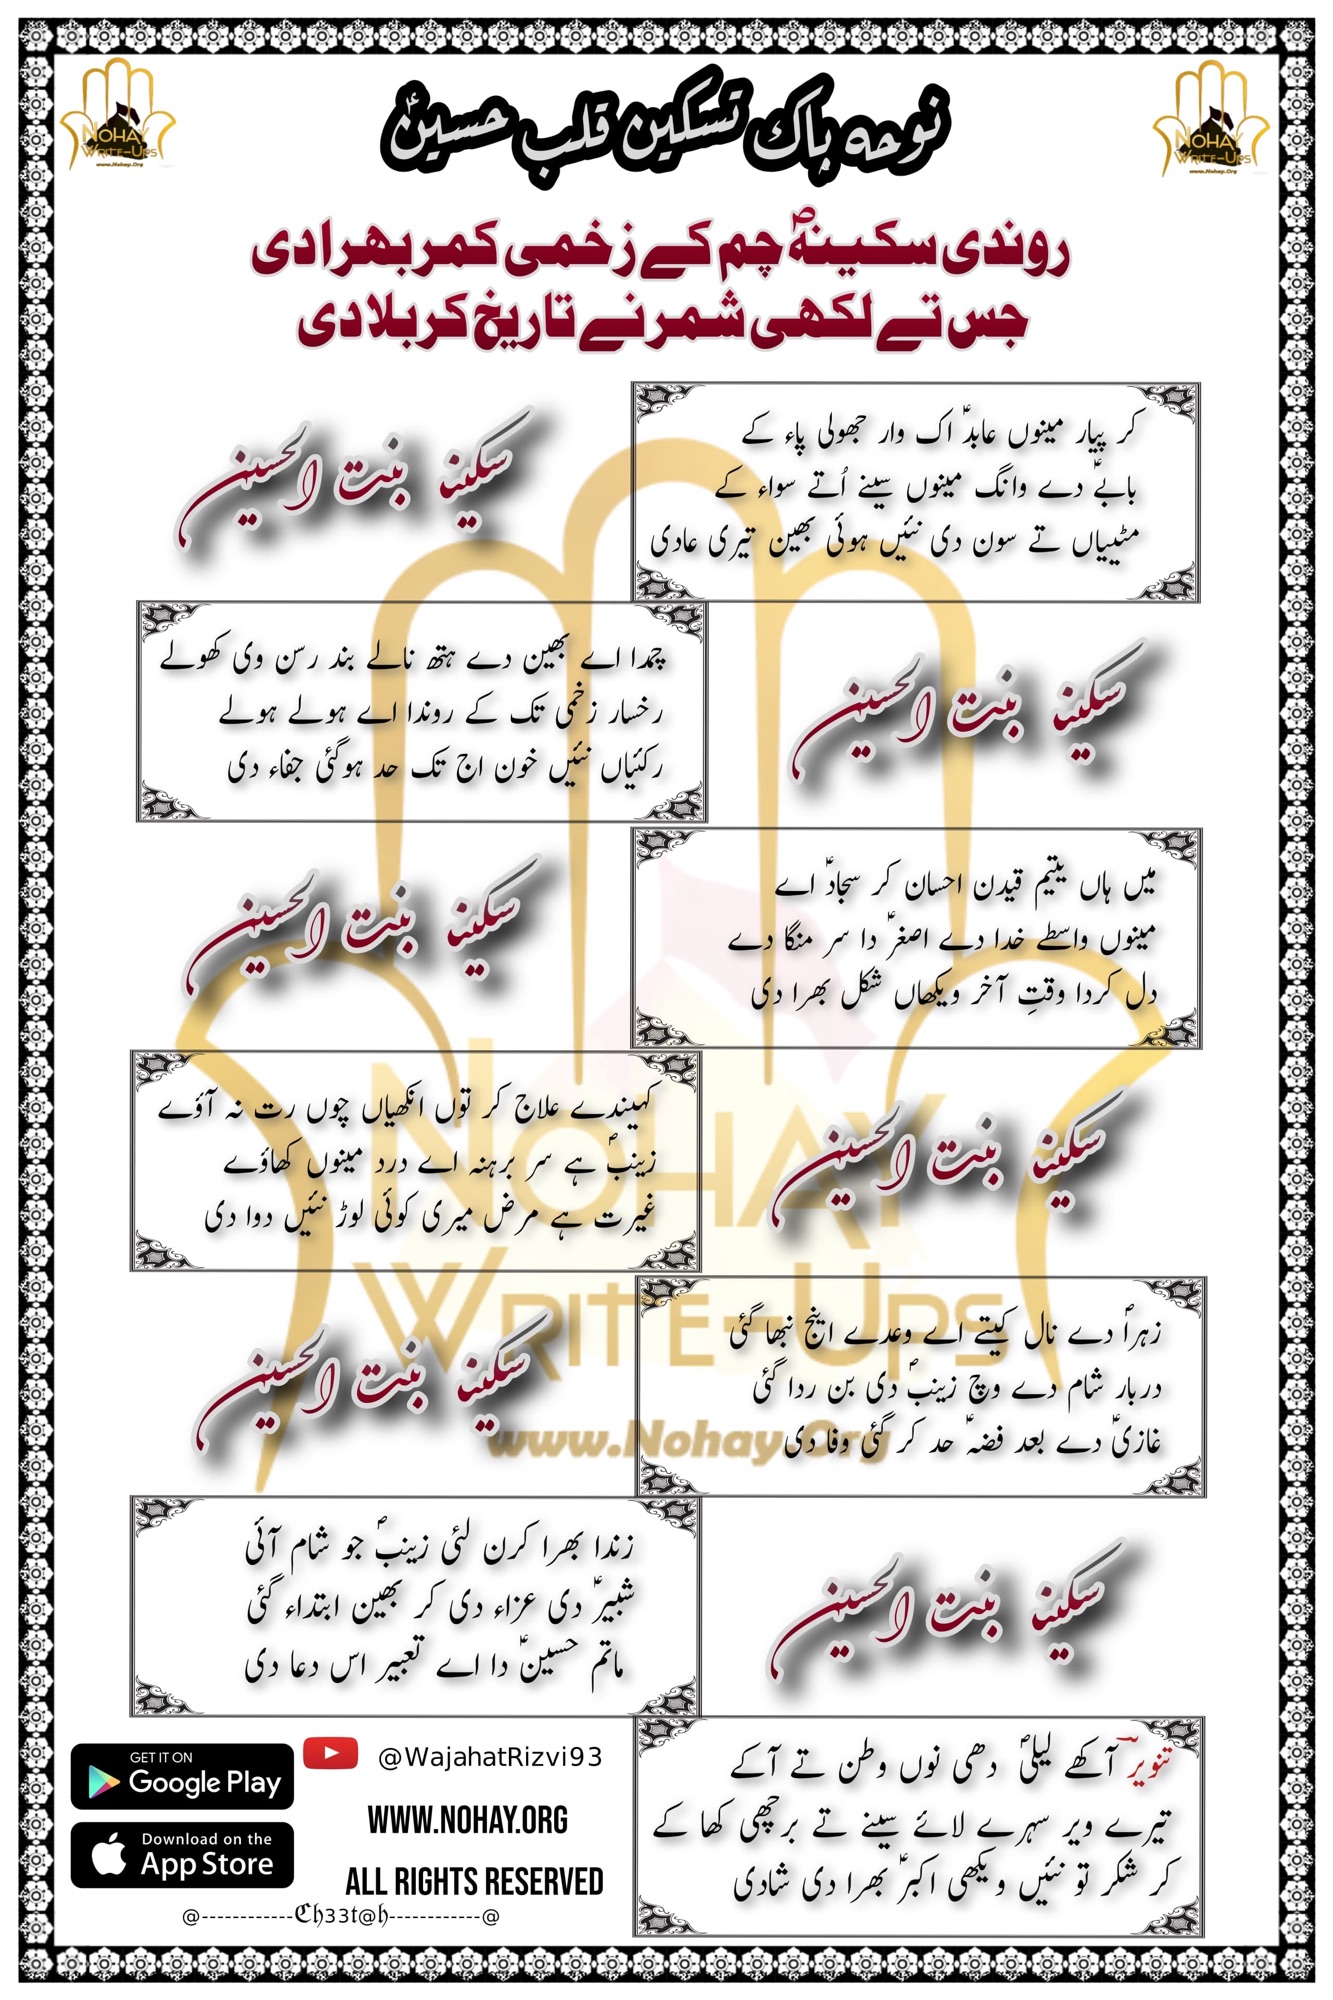 نوحہ پاک تسکین قلب حسینؑ
NOHAY
WRITE-UPS
www.Nohay.Org
NOHAY
WRITE-UPS
www.Nohay.Org
روندی سکینہؑ چم کے زخمی کمر بھرا دی
جس تے لکھی شمر نے تاریخ کربلا دی
کر پیار مینوں عابدؑ اک وار جھولی پاء کے
بابےؑ دے وانگ مینوں سینے اُتے سواء کے
مٹییاں تے سون دی نئیں ہوئی بھین تیری عادی
سکینہ بنت الحسین
چمدا اے بھین دے ہتھ نالے بند رسن وی کھولے
رخسار زخمی تک کے روندا اے ہولے ہولے
رکئیاں نئیں خون اج تک حد ہوگئی جفاء دی
سکینہ بنت الحسین
میں ہاں یتیم قیدن احسان کر سجادؑ اے
مینوں واسطے خدا دے اصغرؑ دا سر منگا دے
دل کردا وقتِ آخر ویکھاں شکل بھرا دی
سکینہ بنت الحسین
کہیندے علاج کر توں انکھیاں چوں رت نہ آؤے
زینبؑ ہے سر برہنہ اے درد مینوں کھاؤے
غیرت ہے مرض میری کوئی لوڑ نئیں دوا دی
سکینہ بنت الحسین
NOHAY
WRITE-UPS
www.Nohay.Org
زہراؑ دے نال کیتے اے وعدے اینج نبھا گئی
دربار شام دے وچ زینبؑ دی بن ردا گئی
غازیؑ دے بعد فضہؑ حد کر گئی وفا دی
سکینہ بنت الحسین
زندا بھرا کرن لئی زینبؑ جو شام آئی
شبیرؑ دی عزاء دی کر بھین ابتداء گئی
ماتم حسینؑ دا اے تعبیر اس دعا دی
سکینہ بنت الحسین
تنویرؔ آکھے لیلیؑ دھی نوں وطن تے آکے
تیرے ویر سہرے لائے سینے تے برچھی کھا کے
کر شکر تو نئیں ویکھی اکبرؑ بھرا دی شادی
GET IT ON
Google Play
@WajahatRizvi93
WWW.NOHAY.ORG
Download on the
App Store
ALL RIGHTS RESERVED
@------------Ch33t@h------------@